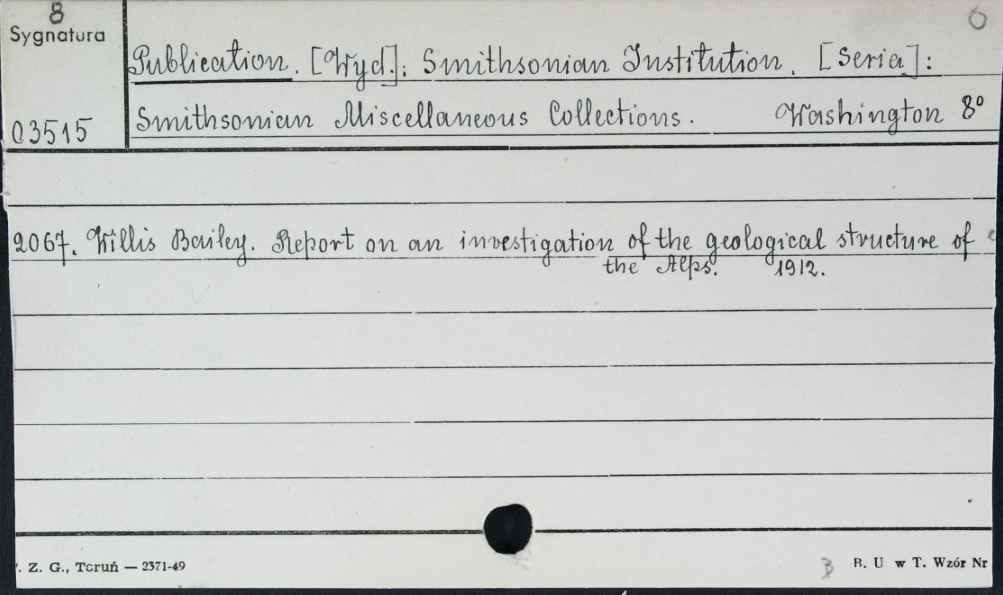 8
Sygnatura
03515
Publication. [Wyd.]: Smithsonian Institution. [Seria]:
Smithsonian Miscellaneous Collections. Washington 8°
2067. Willis Bailey. Report on an investigation of the geological structure of
the Alps. 1912.
Z. G., Toruń — 2371-49
B. U w T. Wzór Nr